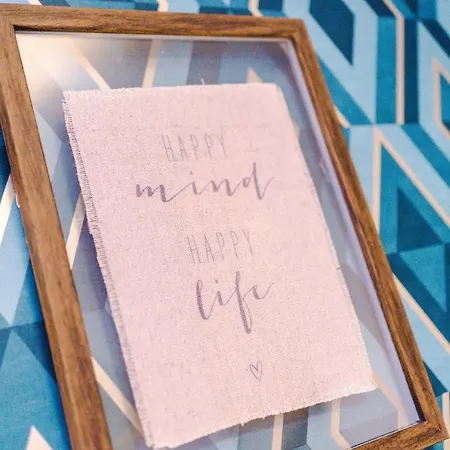 HAPPY
mind
HAPPY
life